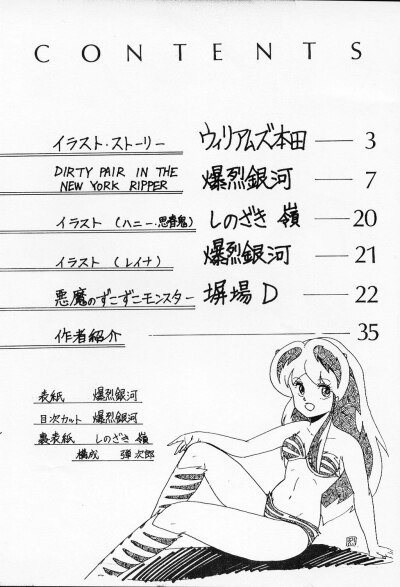 CONTENTS
イラスト・ストーリー ウィリアムズ本田 3
DIRTY PAIR IN THE
NEW YORK RIPPER 爆烈銀河 7
イラスト (ハニー・思春鬼) しのざき 嶺 20
イラスト (レイナ) 爆烈銀河 21
悪魔のずこずこモンスター 塀場D 22
作者紹介 35
表紙 爆烈銀河
目次カット 爆烈銀河
裏表紙 しのざき 嶺
構成 弾次郎